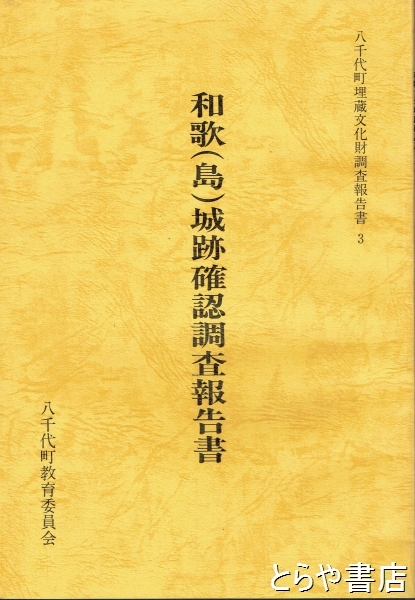 八千代町埋蔵文化財調査報告書 3
和歌(島)城跡確認調査報告書
八千代町教育委員会
とらや書店